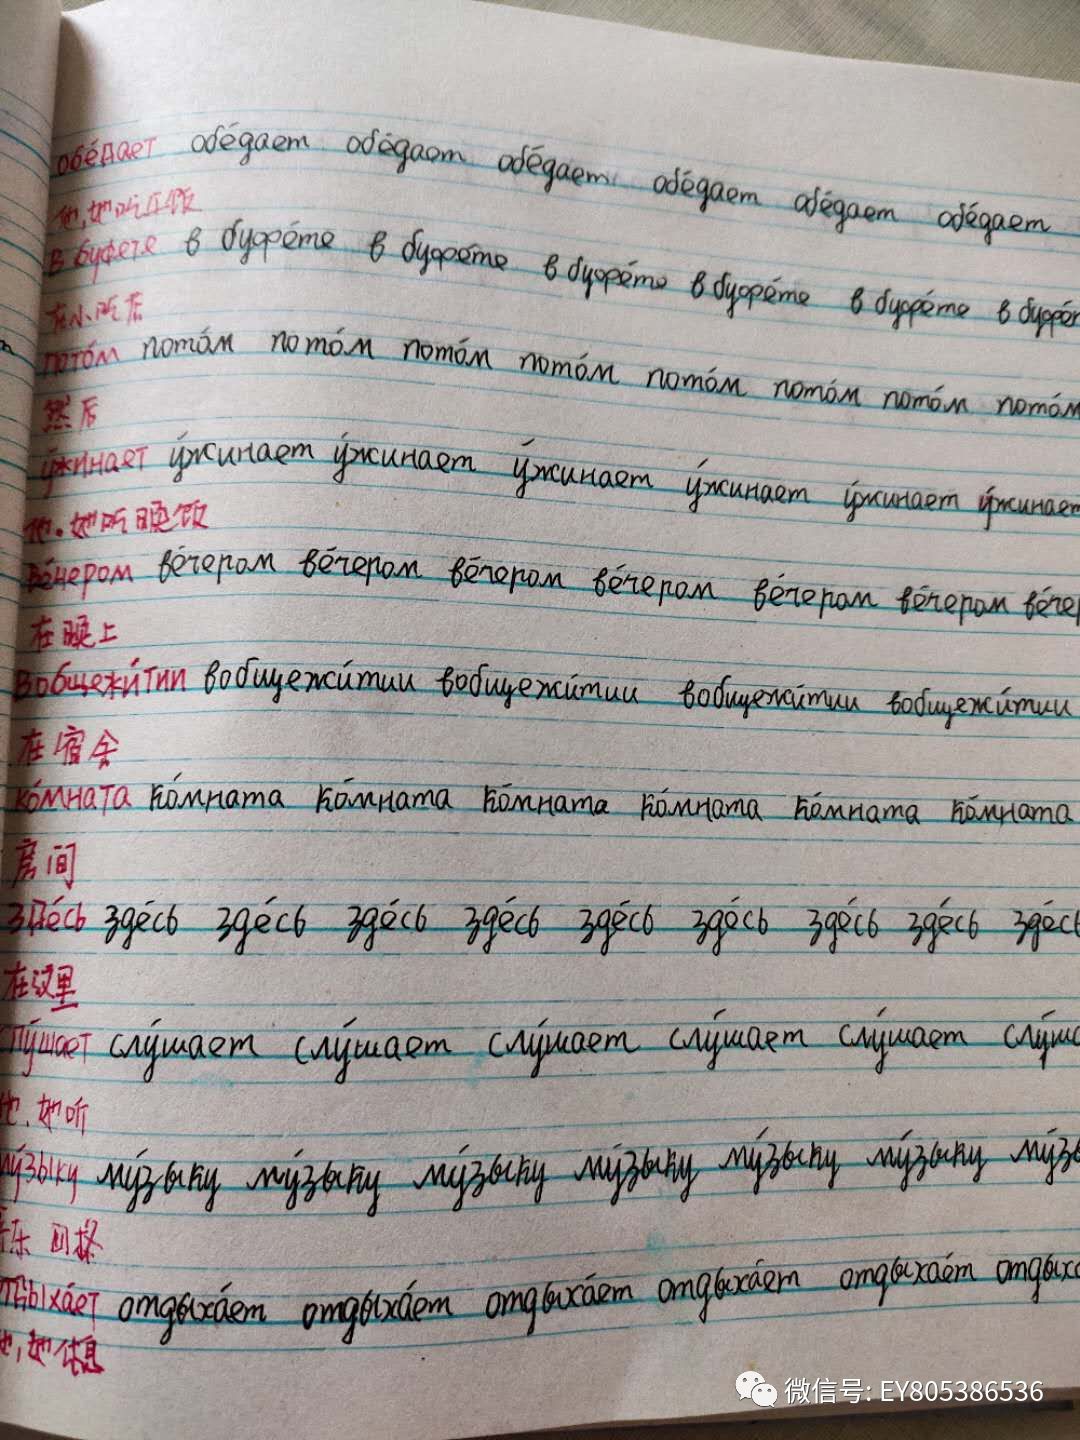 обе́дает обе́дает обе́дает обе́дает обе́дает обе́дает обе́дает
他,她吃午饭
в буфете в буфе́те в буфе́те в буфе́те в буфе́те в буфе́те в буфе́т
在小吃店
пото́м пото́м пото́м пото́м пото́м пото́м пото́м пото́м пото́м
然后
у́жинает у́жинает у́жинает у́жинает у́жинает у́жинает у́жинает
他.她吃晚饭
ве́чером ве́чером ве́чером ве́чером ве́чером ве́чером ве́чером ве́чер
在晚上
вобщежи́тии вобщежи́тии вобщежи́тии вобщежи́тии вобщежи́тии
在宿舍
ко́мната ко́мната ко́мната ко́мната ко́мната ко́мната ко́мната
房间
зде́сь зде́сь зде́сь зде́сь зде́сь зде́сь зде́сь зде́сь зде́сь зде́сь
在这里
слу́шает слу́шает слу́шает слу́шает слу́шает слу́шает слу́ша
他.她听
му́зыку му́зыку му́зыку му́зыку му́зыку му́зыку му́зыку му́зы
音乐 四格
отдыха́ет отдыха́ет отдыха́ет отдыха́ет отдыха́ет отдыха́ет отдыха
他,她休息
微信号: EY805386536